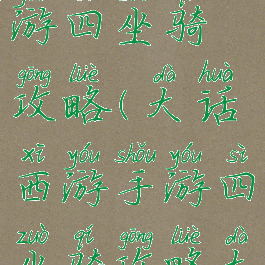 游四坐骑
gōng lüè dà huà
攻略(大话
xī yóu shǒu yóu sì
西游手游四
zuò qí gōng lüè dà
坐骑攻略大